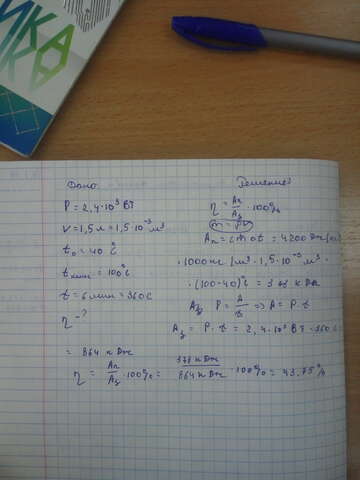 ИКА
Дано
Решение
P = 2,4·10³ Вт
V = 1,5 л = 1,5·10⁻³ м³
t₀ = 40°C
tкип = 100°C
t = 6 мин = 360 с
η - ?
η = Aп/Aз · 100%
m = ρV
Aп = cmΔt = 4200
· 1000 кг/м³ · 1,5·10⁻³ м³ ·
· (100-40)°C = 378 кДж
Aз P = A/t => A = P·t
Aз = P·t = 2,4·10³ Вт · 360 с
= 864 кДж
η = Aп/Aз · 100% = 378 кДж/864 кДж · 100% = 43,75%